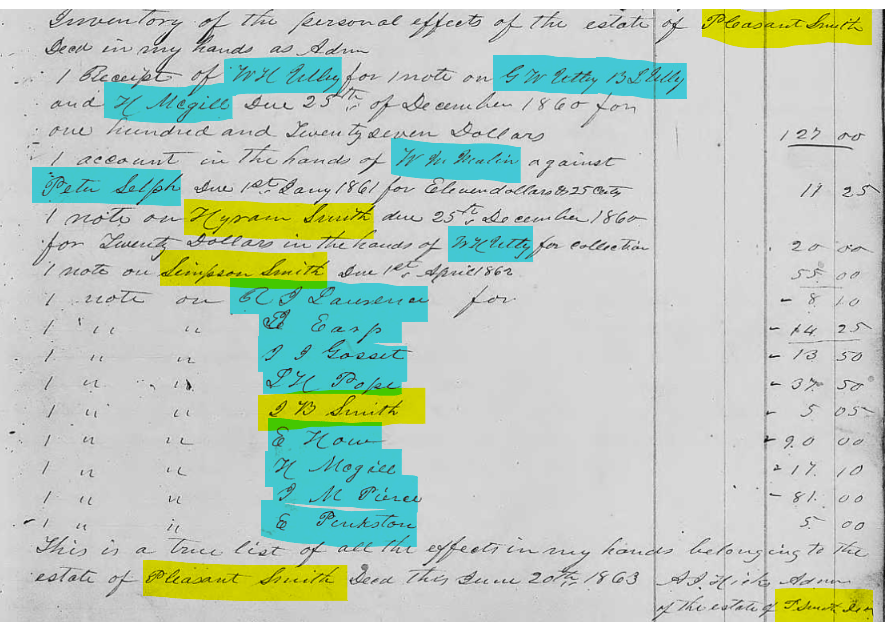 Inventory of the personal effects of the estate of Pleasant Smith
Decd in my hands as Admr
1 Receipt of W H Utley for 1 note on G W Utley B L Utley
and H Mcgill Due 25th of December 1860 for
one hundred and Twenty seven Dollars 127 00
1 account in the hands of W M against
Peter Selph Due 1st Jany 1861 for Eleven dollars & 25 cts 11 25
1 note on Hyram Smith due 25th December 1860
for Twenty Dollars in the hands of W H Utley for collection 20 00
1 note on Simpson Smith Due 1st April 1862 55 00
1 note on R J Lawrence for - 8 10
1 " " Earp - 14 25
1 " " J J Gosset - 13 50
1 " " L H Pope - 37 50
1 " " J B Smith - 5 05
1 " " E How - 90 00
1 " " H Mcgill - 17 10
1 " " J M Pierce - 81 00
1 " " E Pinkston 5 00
This is a true list of all the effects in my hands belonging to the
estate of Pleasant Smith Decd this June 20th 1863 A J Hicks Admr
of the estate of P Smith Decd